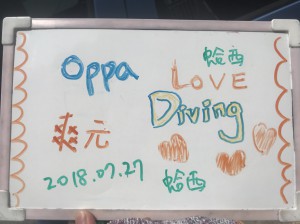 Oppa
蛤西
LOVE
Diving
爽元
2018.07.27
蛤西